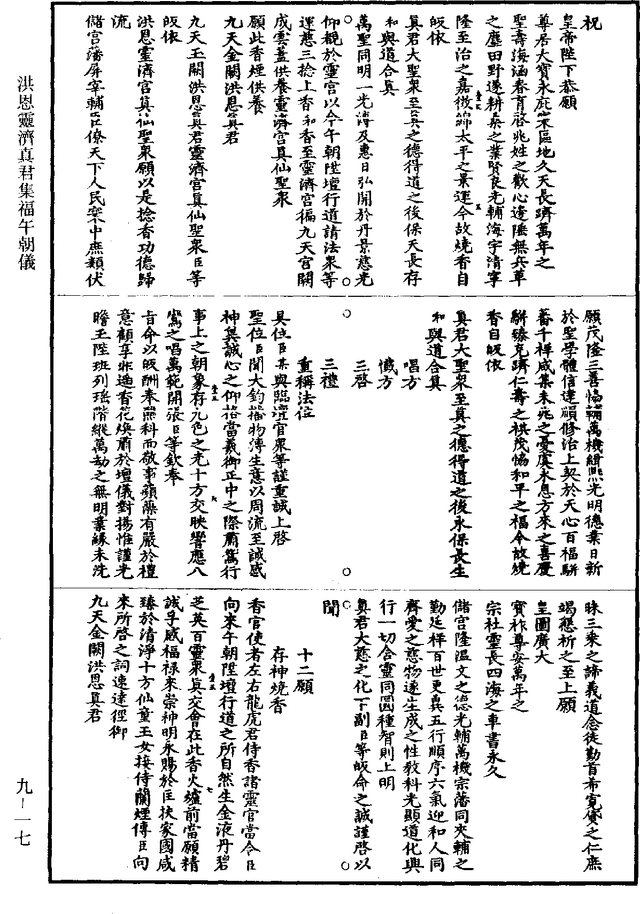 洪恩靈濟真君集福午朝儀
祝
皇帝陛下恭願
尊居大寶永庇家區地久天長躋萬年之
聖壽海涵春育啓兆姓之歡心邊陲無兵革
之塵田野遂耕桑之業賢良光輔海宇清寧
隆至治之嘉徵綿太平之景運今故燒香自
皈依
真君大聖衆至真之德得道之後保天長存
和與道合真
萬聖同明一光溥及惠日弘開於丹景慈光
仰觀於靈宮以今午朝陞壇行道請法衆等
運應三捻上香和香至靈濟宮徧九天宮闕
成雲蓋供養靈濟宮真仙聖衆
願此香煙供養
九天金闕洪恩真君
九天玉闕洪恩真君靈濟宮真仙聖衆臣等
皈依
洪恩靈濟宮真仙聖衆願以是捻香功德歸
流
儲宮藩屏宰輔臣僚天下人民衆中庶類伏
願茂隆三善恊輔萬機緝熙光明德業日新
於聖學體信達順修治上契於天心百福駢
蕃千祥咸集未兆之憂虞永息方來之喜慶
駢臻克躋仁壽之祺茂恊和平之福今故燒
香自皈依
真君大聖衆至真之德得道之後永保長生
和與道合真
唱方
懺方
三啓
三禮
重稱法位
具位臣某與臨壇官衆等謹重誠上啓
聖位臣聞大鈞播物溥生意以周流至誠感
神冀誠心之仰格當羲御正中之際肅鴛行
事上之朝象存九色之光十方交映響應八
鸞之唱萬範開張臣等欽奉
旨命以皈酬奉熙科而敬事蘋藻有嚴於禮
意顧享非遥香花煥肅於壇儀對揚惟謹光
瞻玉陛班列瑶階縱萬劫之無明業緣未洗
昧三乘之諦義道念徒勤首希寬貸之仁庶
竭懇祈之至上願
皇圖廣大
寶祚尊安萬年之
宗社靈長四海之車書永久
儲宮隆溫文之德光輔萬機宗藩同夾輔之
勤延祥百世更冀五行順序六氣迎和人同
齊愛之慈物遂生成之性教科光顯道化興
行一切含靈同圓種智則上明
真君大慈之化下副臣等皈命之誠謹啓以
聞
十二願
存神燒香
香官使者左右龍虎君侍香諸靈官當令臣
向來午朝陞壇行道之所自然生金液丹碧
芝英百靈衆真交會在此香火爐前當願精
誠孚感福祿來崇神明永賜於臣扶家國咸
臻於清淨十方仙童玉女接侍蘭煙傳臣向
來所啓之詞速達徑御
九天金闕洪恩真君
九-一七